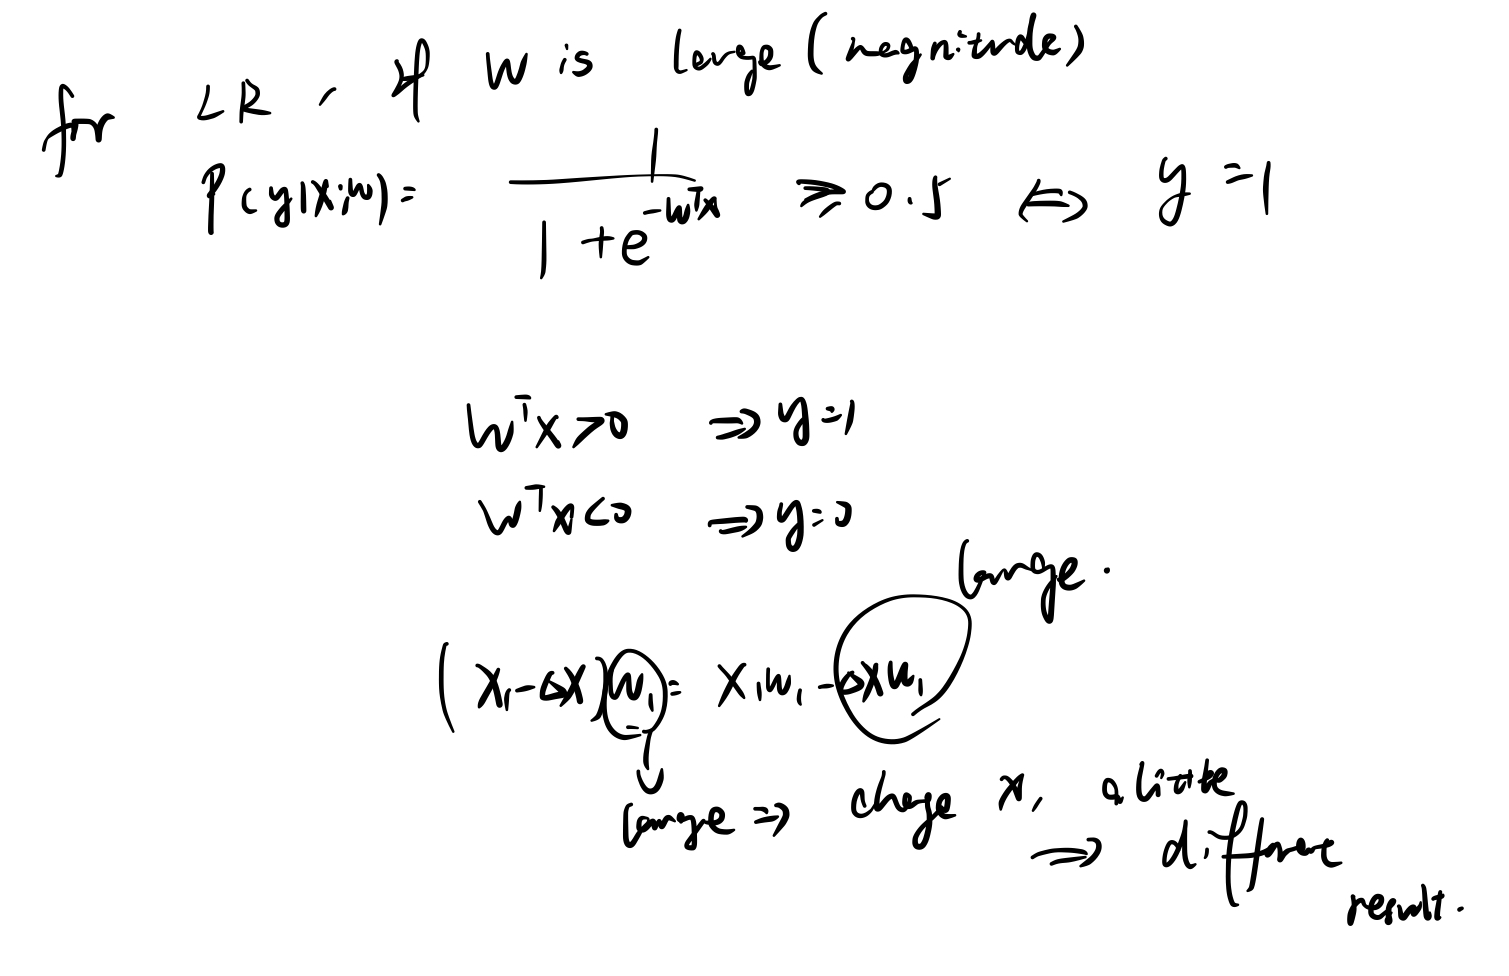 for LR, if w is large (magnitude)
P(y|x;w) = 1 / (1 + e^{-w^T x}) ⩾ 0.5 ⇔ y = 1
w^T x > 0 ⇒ y = 1
w^T x < 0 ⇒ y = 0
large.
(x₁ - Δx) w₁ = x₁w₁ - Δxw₁
large ⇒ change x₁ a little
⇒ different
result.